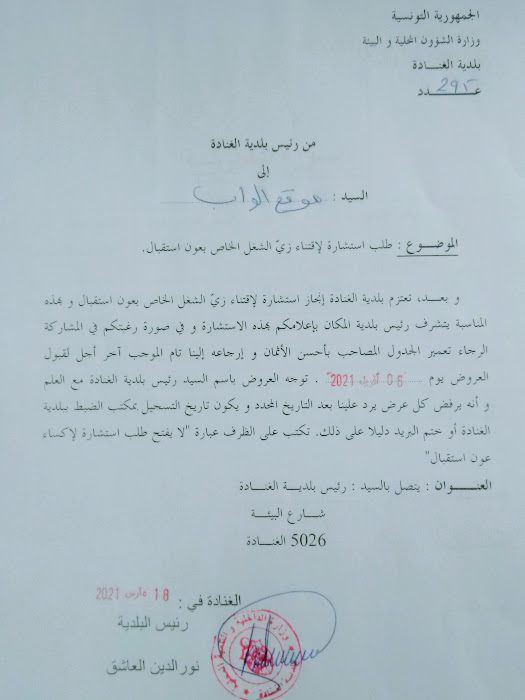 الجمهورية التونسية
وزارة الشؤون المحلية و البيئة
بلدية الغنـــادة
عـــدد 295
من رئيس بلدية الغنادة
إلى
السيد : موقع الواب
الموضـــوع : طلب استشارة لإقتناء زيّ الشغل الخاص بعون استقبال.
و بعــد، تعتزم بلدية الغنادة إنجاز استشارة لإقتناء زيّ الشغل الخاص بعون استقبال و بهذه
المناسبة يتشرف رئيس بلدية المكان بإعلامكم بهذه الاستشارة و في صورة رغبتكم في المشاركة
الرجاء تعمير الجدول المصاحب بأحسن الأثمان و إرجاعه إلينا تام الموجب آخر أجل لقبول
العروض يوم 06 أفريل 2021 . توجه العروض باسم السيد رئيس بلدية الغنادة مع العلم
و أنه يرفض كل عرض يرد علينا بعد التاريخ المحدد و يكون تاريخ التسجيل بمكتب الضبط ببلدية
الغنادة أو ختم البريد دليلا على ذلك. تكتب على الظرف عبارة "لا يفتح طلب استشارة لإكساء
عون استقبال"
العنـــــوان : يتصل بالسيد : رئيس بلديـة الغنـادة
شـارع البيئـة
5026 الغنادة
الغنادة في : 18 مارس 2021
رئيس البلدية
نور الدين العاشق